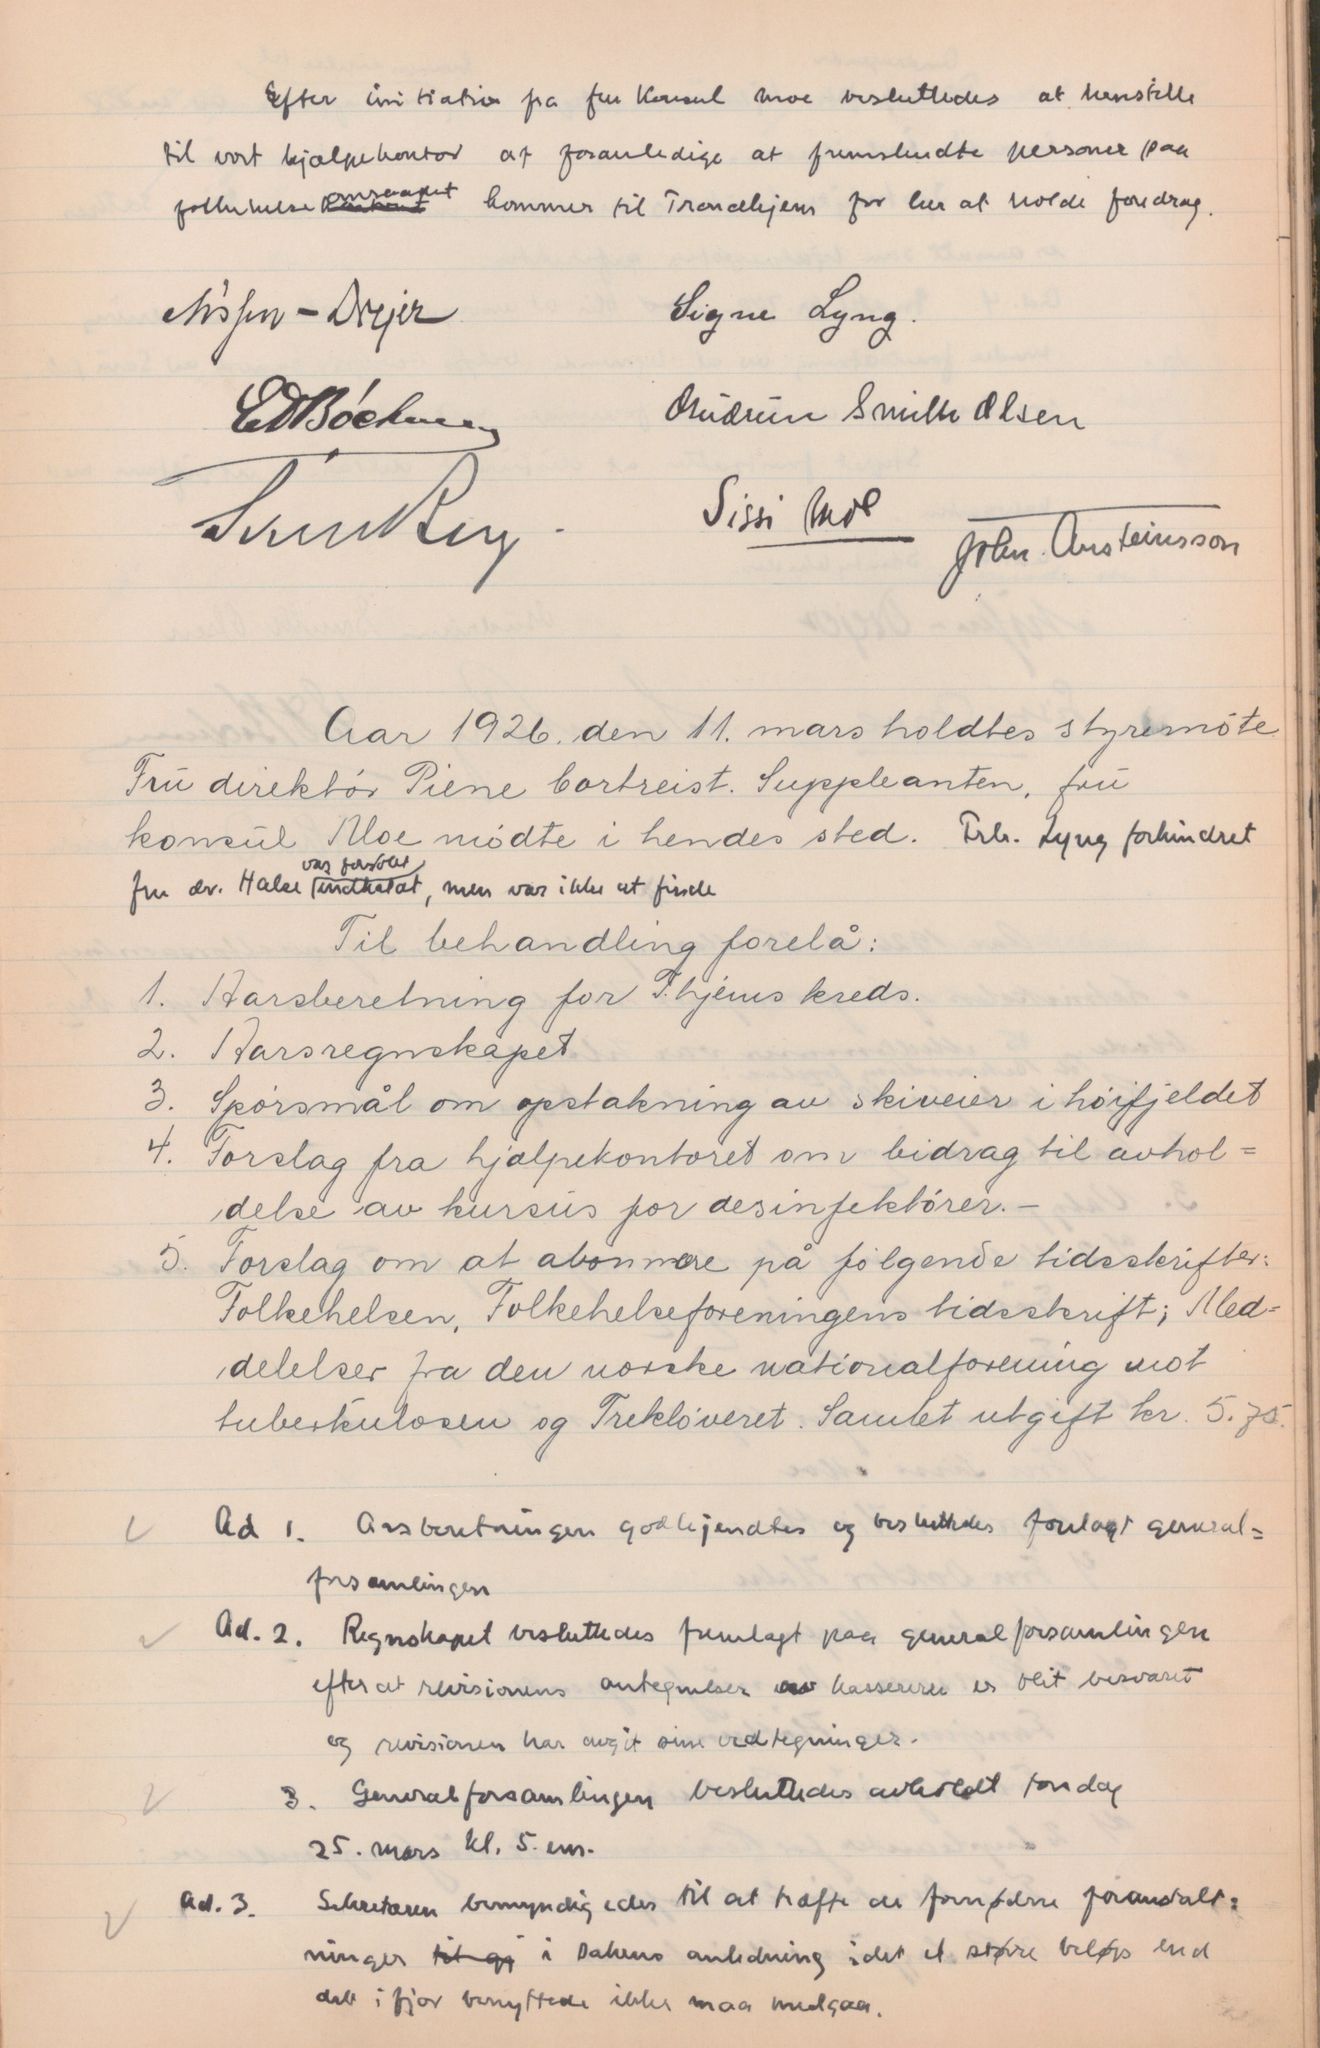 Efter initiativ fra fru Konsul Moe besluttedes at henstille
til vort hjælpekontor at foranledige at fremskudte personer paa
folkehelseomraadet kommer til Trondhjem for her at holde foredrag.
Nissen-Drejer
Signe Lyng.
ED Böckman
Gudrun Smith Olsen
Sissi Moe
John. Aarsteinsson
Aar 1926. den 11. mars holdtes styremöte
Frü direktör Piene bortreist. Suppleanten, frü
konsül Moe mödte i hendes sted. Frk. Lyng forhindret
fru dr. Halse var forsökt indkaldt, men var ikke at finde
Til behandling forelå:
1. Aarsberetning for T.hjems kreds.
2. Aarsregnskapet
3. Spörsmål om opstakning av skiveier i höifjeldet
4. Forslag fra hjælpekontoret om bidrag til avhol=
delse av kursüs for desinfektörer.-
5. Forslag om at abonnere på fölgende tidsskrifter:
Folkehelsen, Folkehelseforeningens tidsskrift; Med=
delelser fra den norske nationalforening mot
tuberkulosen og Treklöveret. Samlet utgift kr. 5.75.
Ad 1. Arsberetningen godkjendtes og besluttedes forelagt general=
forsamlingen
Ad. 2. Regnskapet besluttedes fremlagt paa generalforsamlingen
efter at revisionens antegnelser av kassereren er blit besvaret
og revisionen har avgit sine vedtegninger.
3. Generalforsamlingen besluttedes avholdt torsdag
25. mars kl. 5. em.
Ad. 3. Sekretæren bemyndigedes til at træffe de fornødne foranstalt=
ninger i sakens anledning idet et større beløp end
det ifjor benyttede ikke maa medgaa.